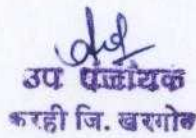 उप पंजीयक
करही जि. खरगोन